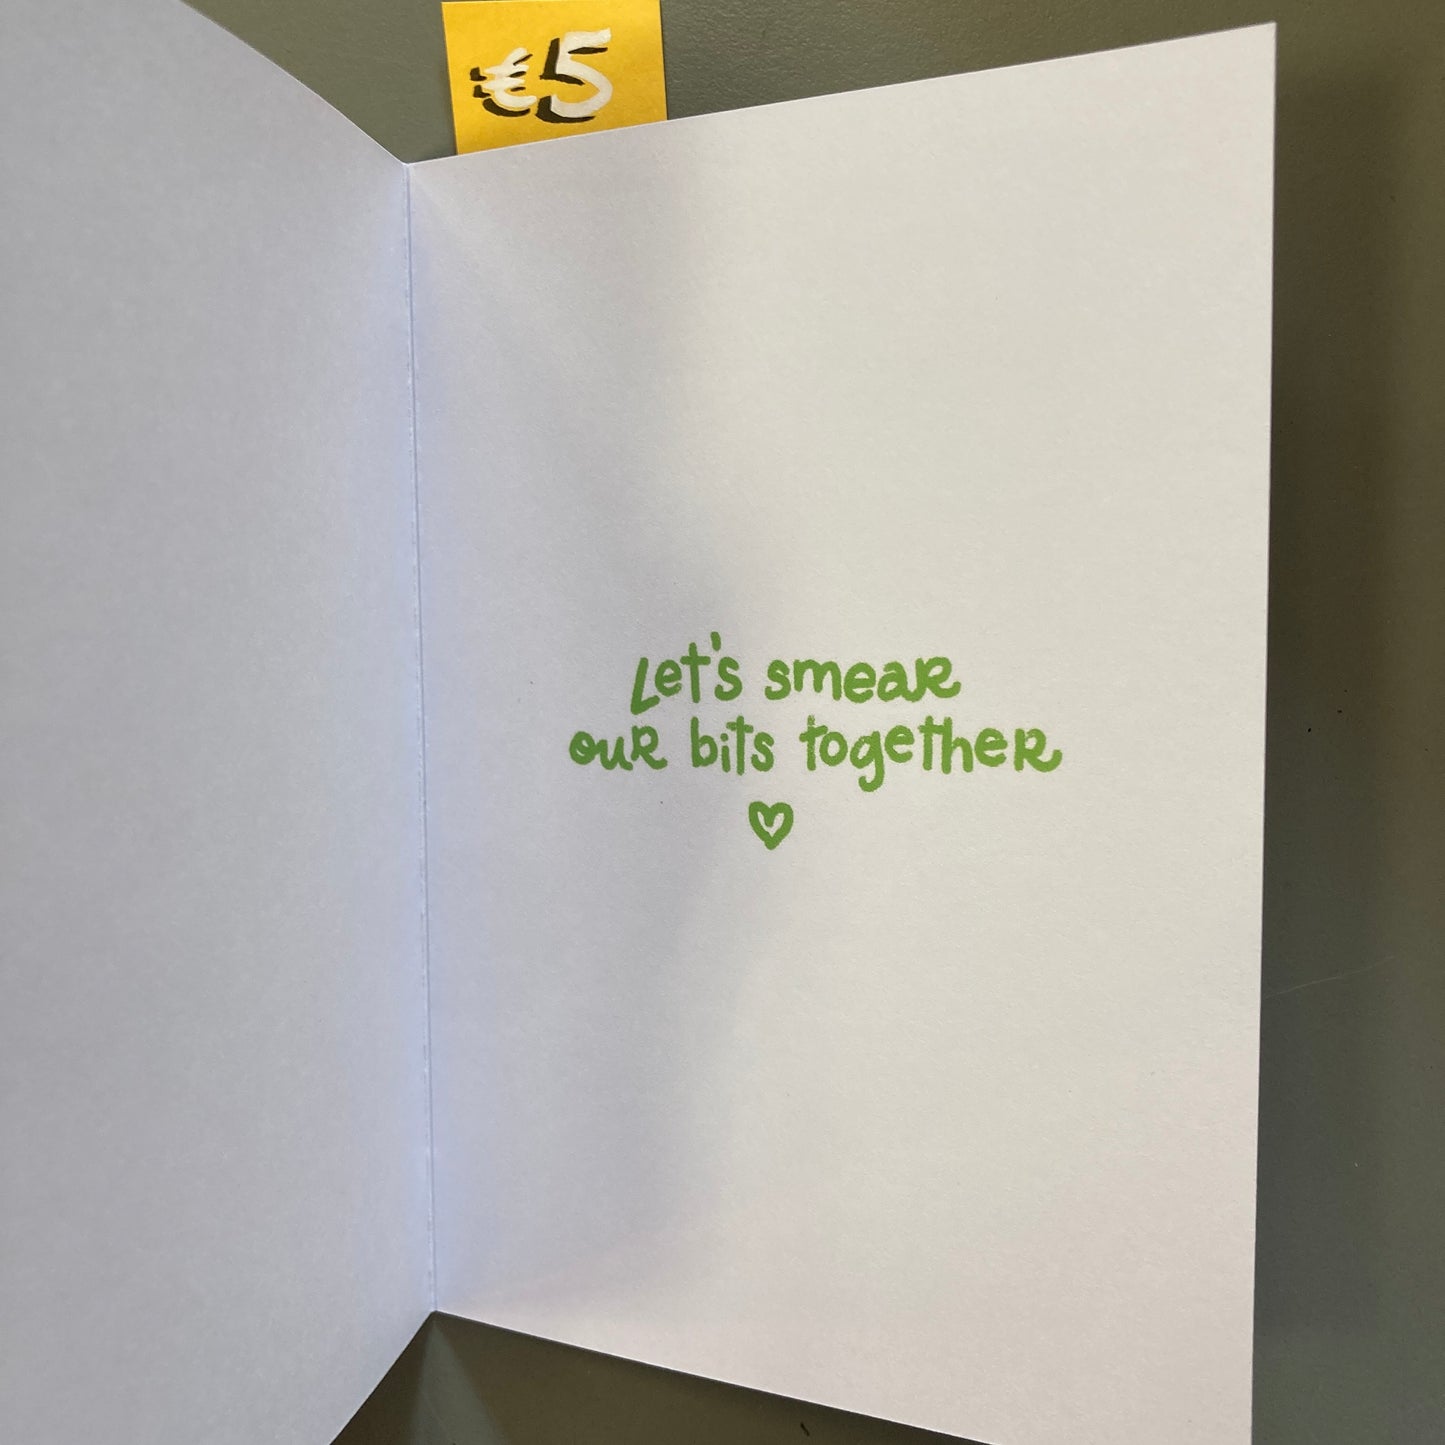 €5
Let's smear
our bits together